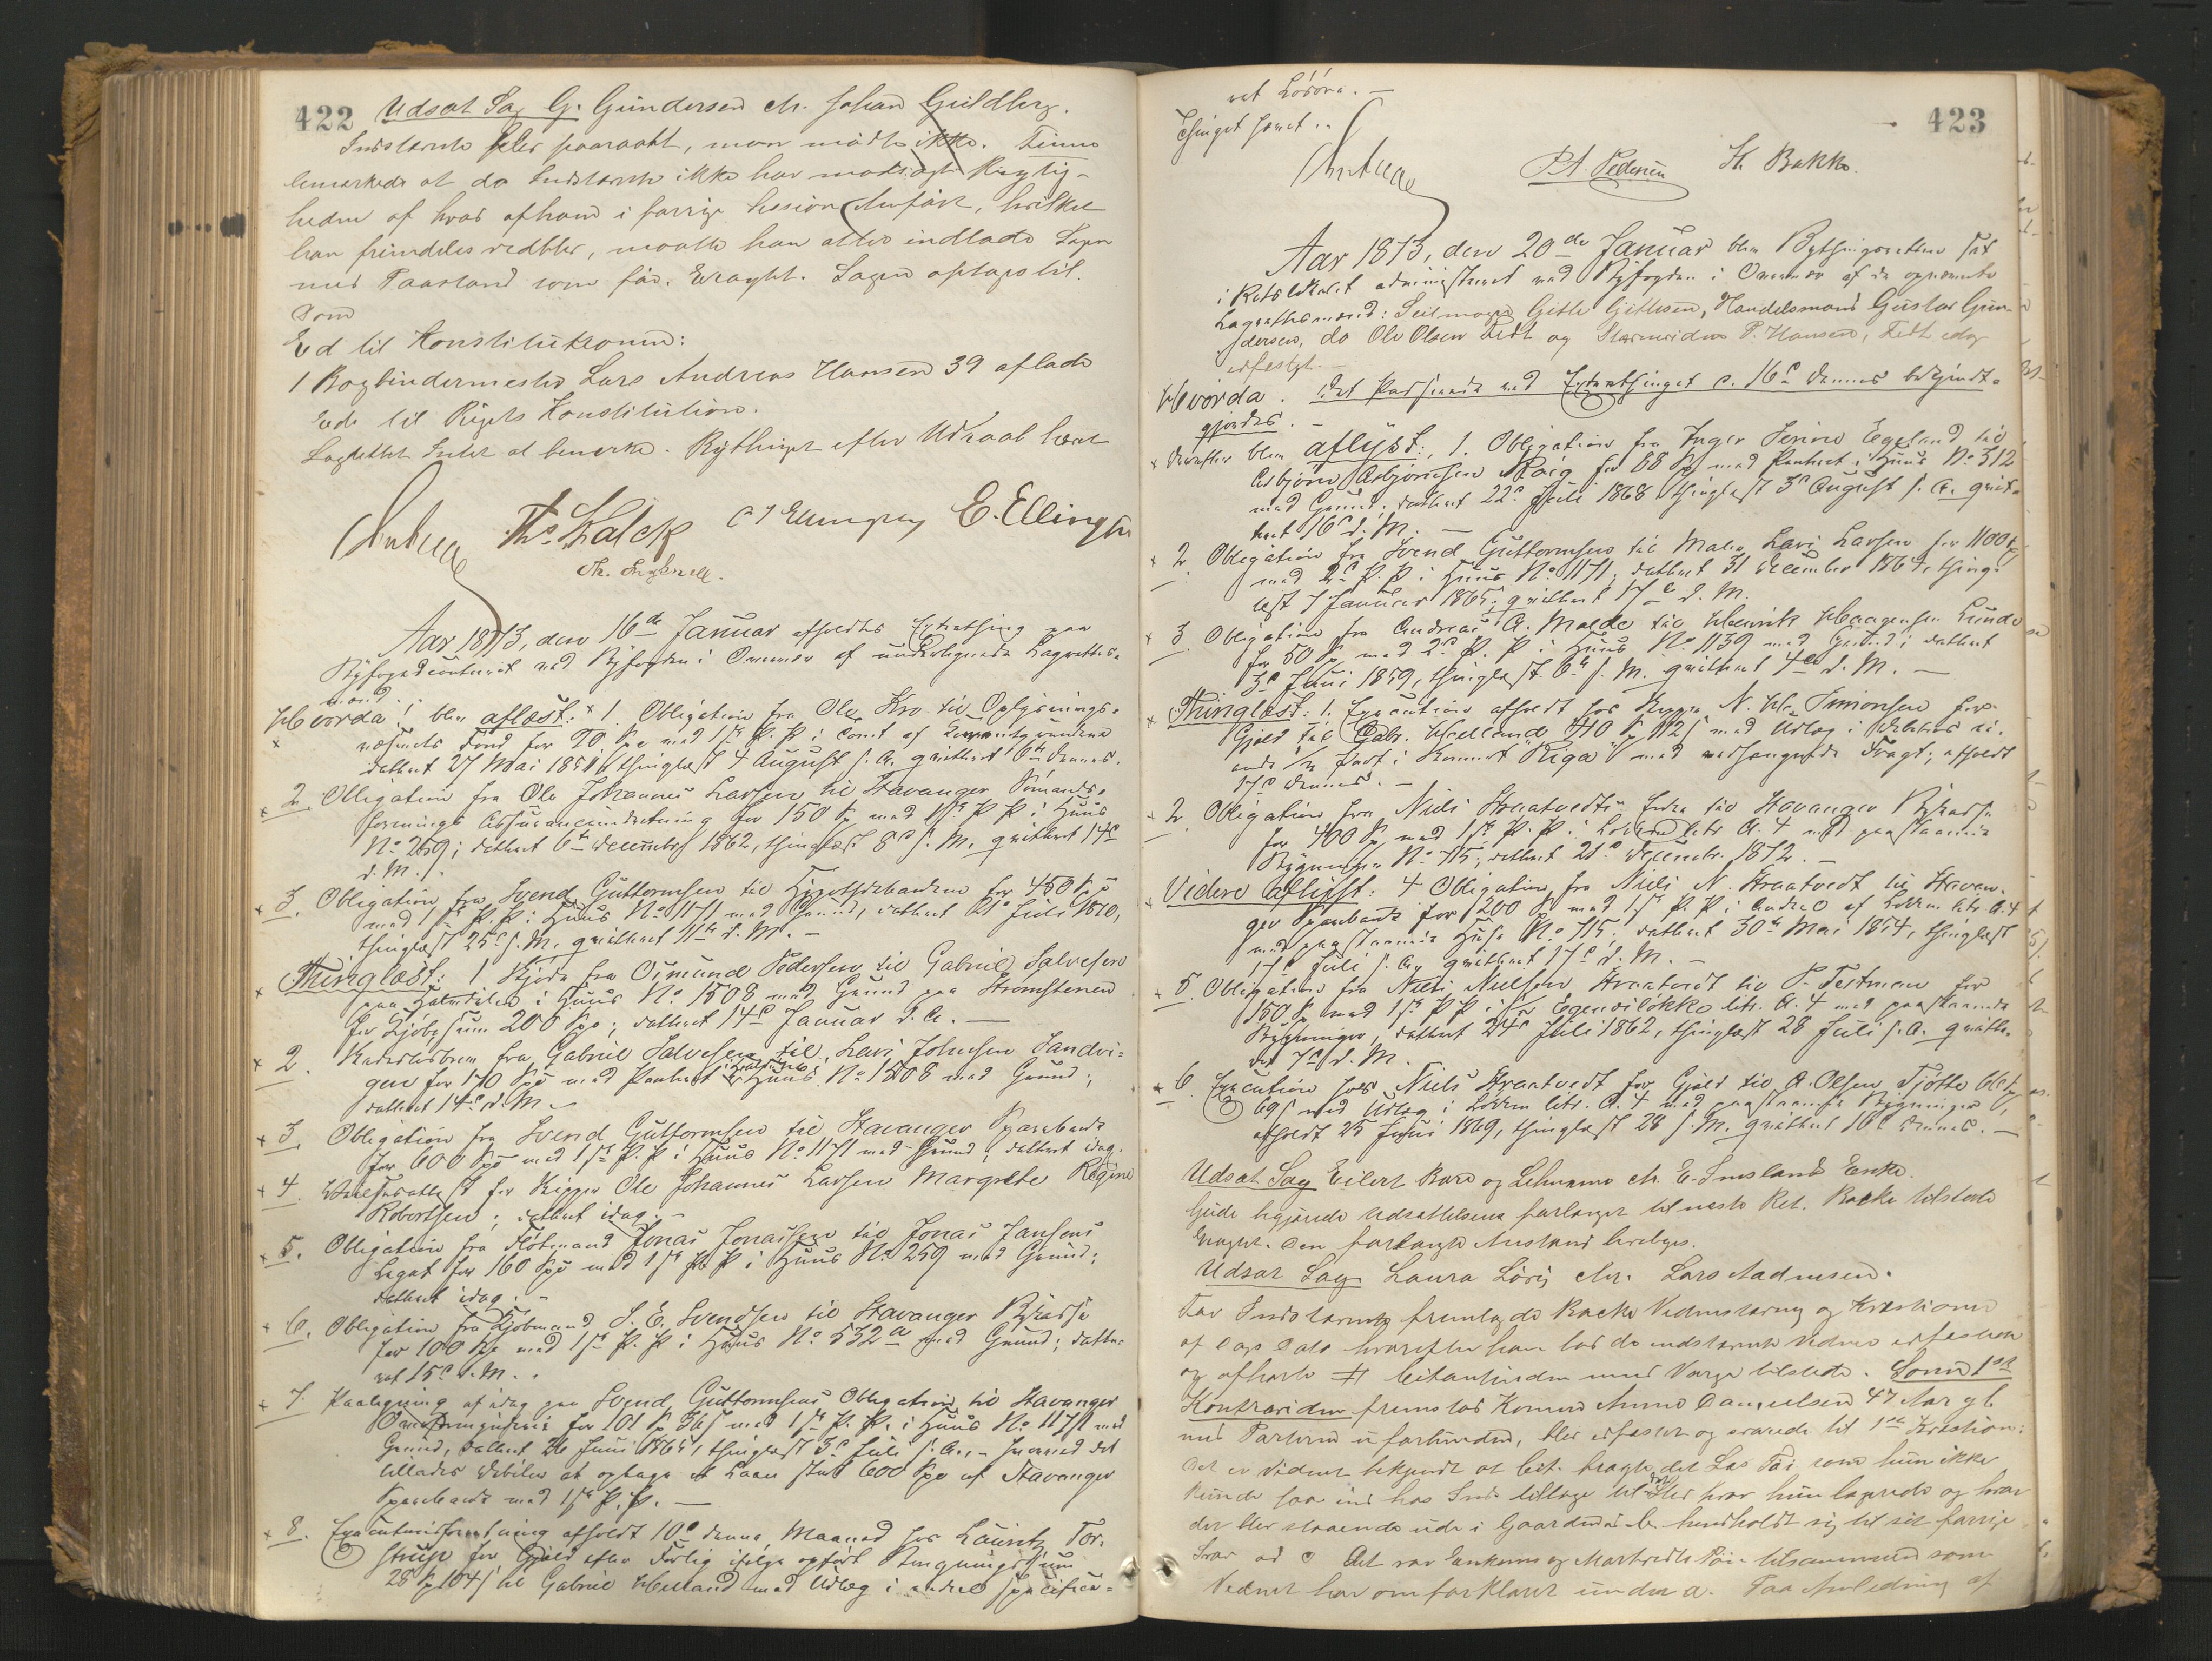 422 Udsat Sag G. Gundersen ctr. Johan Guldberg.
Indstævnte blev paaraabt, men mødte ikke. Tinne
bemærkede at da Indstævnte ikke har modsagt Rigtig-
heden af hvad af ham i forrige Session anført, hvilket
han fremdeles vedblev, maatte han atter indlade Sagen
med Paastand som før. Eragtet. Sagen optages til
Dom
Ed til Konstitutionen:
1 Bogbindermester Lars Andreas Hansen 39 aflade
Ed til Rigets Konstitution.
Lagrettet Intet at bemærke. Bythinget efter Udraab hævet
Ths. Kalck E. Ellingsen
Aar 1873, den 16de Januar afholdtes Extrathing paa
Byfogedcontoiret ved Byfogden i Overvær af undertegnede Lagrettes-
mænd.
Hvorda: blev aflæst: 1. Obligation fra Ole Kro til Oplysnings-
væsenets Fond for 90 Spd med 1ste P. P. i
datteret 27 Mai 1851, thinglæst 4 August s. A. qvitteret 6te dennes.
2. Obligation fra Ole Johannes Larsen til Stavanger Sømands-
forenings Assuranceindretning for 150 Sp. med 1ste P. P. i Huus
No 259; datteret 6te December 1862, thinglæst 8de s. M. qvitteret 14de
d. M.
3. Obligation fra Svend Guttormsen til Hypothekbanken for 450 Spd
med 1ste P. P. i Huus No 1171 med Grund, datteret 21de Juli 1870,
thinglæst 25de s. M. qvitteret 11te d. M. —
Thinglæst: 1. Skjøde fra Osmund Pedersen til Gabriel Salvesen
paa Halvdelen i Huus No 1508 med Grund paa Strømstenen
for Kjøbesum 200 Spd; datteret 14de Januar d. A. —
2. Kaderbrev fra Gabriel Salvesen til Lars Johnsen Sandvi-
gen for 170 Spd med Panteret i Huus No 1508 med Grund;
datteret 14de d. M. —
3. Obligation fra Svend Guttormsen til Stavanger Sparebank
for 600 Spd med 1ste P. P. i Huus No 1171 med Grund; datteret idag.
4. Skifteattest for Skipper Ole Johannes Larsen Margrete Regine
Robertsen; datteret idag. —
5. Obligation fra Fløtmand Jonas Jonassen til Jonas Jansens
Legat for 160 Spd med 1ste P. P. i Huus No 259 med Grund;
datteret idag. —
6. Obligation fra Kjøbmand S. E. Svendsen til Stavanger Bykasse
for 100 Spd med 1ste P. P. i Huus No 532a med Grund; datte-
ret 15de d. M.
7. Paategning af idag paa Svend Guttormsens Obligation til Stavanger
for 101 Sp 36 s med 1ste P. P. i Huus No 1171 med
Grund, datteret 26 Juni 1865, thinglæst 3de Juli s. A., hvorved det
tillades Debitor at optage et Laan stort 600 Spd af Stavanger
Sparebank med 1ste P. P. —
8. Executionsforretning afholdt 10de denne Maaned hos Lauritz Tor-
strup for Gjæld efter Forlig ifølge opført
28 Sp 104 s til Gabriel Helland med Udlæg i endeel specifice-
423
ret Løsøre. —
Thinget hævet.
P. A. Pedersen Th. Bakke.
Aar 1873, den 20de Januar blev Bythingsretten sat
i Retslokalet administreret ved Byfogden i Overvær af de opnævnte
Lagrettesmænd: Seilmager Gitle Gitlesen, Handelsmænd Gustav Gun-
dersen, do Ole Olsen Tedt og P. Hansen, Tedt edag
edfæstet. —
Hvorda. Det Passerede ved Extrathinget d. 16de dennes bekjendt-
gjordes. —
Derefter blev aflyst: 1. Obligation fra Inger Serine Egeland til
Asbjørn Asbjørnsen Roig for 68 Sp med Panteret i Huus No 312
med Grund; datteret 22de Juli 1868 thinglæst 3de August s. A. qvit-
teret 16de d. M. —
2. Obligation fra Svend Guttormsen til Maler Lars Larsen for 1100 Sp
med 2det P. P. i Huus No 1171; datteret 31 December 1864, thing-
læst 7 Januar 1865; qvitteret 17de d. M.
3. Obligation fra Andreas A. Malde til Henrik Haagensen Lunde
for 50 Sp med 2det P. P. i Huus No 1139 med Grund; datteret
3de Juni 1859, thinglæst 6te s. M. qvitteret 4de d. M. —
Thinglæst: 1. Execution afholdt hos Skipper N. Chr. Simonsen for
Gjæld til Gabr. Helland 710 Sp 112 s med Udlæg i Debitors ei-
ende 1/2 Part i Skonnert Riga med vedhængende Fragt; afholdt
17de dennes. —
2. Obligation fra Niels Straatvedts Enke til Stavanger Bykasse
for 400 Sp med 1ste P. P. i Løkken litr. A. 4 med paastaaende
Bygninger No 715; datteret 21de Decembr. 1872. —
Videre aflyst: 4 Obligation fra Niels N. Straatvedt til Stavan-
ger Sparebank for 200 Sp med 1ste P. P. i Andeel af Løkken litr. A. 4
med paastaaende Huse No 715; datteret 30te Mai 1854, thinglæst
17de Juli s. A. qvitteret 17de d. M. —
5. Obligation fra Niels Nielsen Straatvedt til P. Testman for
150 Sp med 1ste P. P. i Egenesløkke litr. A. 4 med paastaaende
Bygninger, datteret 24de Juli 1862, thinglæst 28 Juli s. A. qvitte-
ret 7de d. M.
6. Execution hos Niels Straatvedt for Gjæld til A. Olsen Tjøtte
69 s med Udlæg i Løkken litr. A. 4 med paastaaende Bygninger,
afholdt 25 Juni 1869, thinglæst 28 s. M. qvitteret 16de dennes. —
Udsat Sag Eilert Bore og Lehmann ctr. E. Smslands Enke.
Gjede begjærede Udsættelsen forlænget til næste Ret. Backe tilstede
Eragtet. Den forlangte Anstand bevilges.
Udsat Sag Laura Lövig ctr. Lars Aadnesen.
For Indstævnte fremlagde Backe Vidnestævning og Kvæstioner
af Dags Dato hvorefter han lod de indstævnte Vidner edfæstede
og afhørte # Citantinden med Værge tilstede. Som 1ste
Kontravidne fremstod Konen Anne Danielsen 47 Aar gl.
med Parterne uforbunden, blev edfæstet og svarede til 1ste Kvæstion:
Det er Vidnet bekjendt at Cit. bragte det Læs Tøi som hun ikke
kunde faa ind hos Inds. tillige til det Sted hvor hun logerede og hvor
det blev staaende ude i Gaarden b. henholdt sig til sit forrige
Svar ad c Det var Enkens og Martvedts Tøi tilsammen som
Vidnet har omforklaret under a. Paa Anledning af